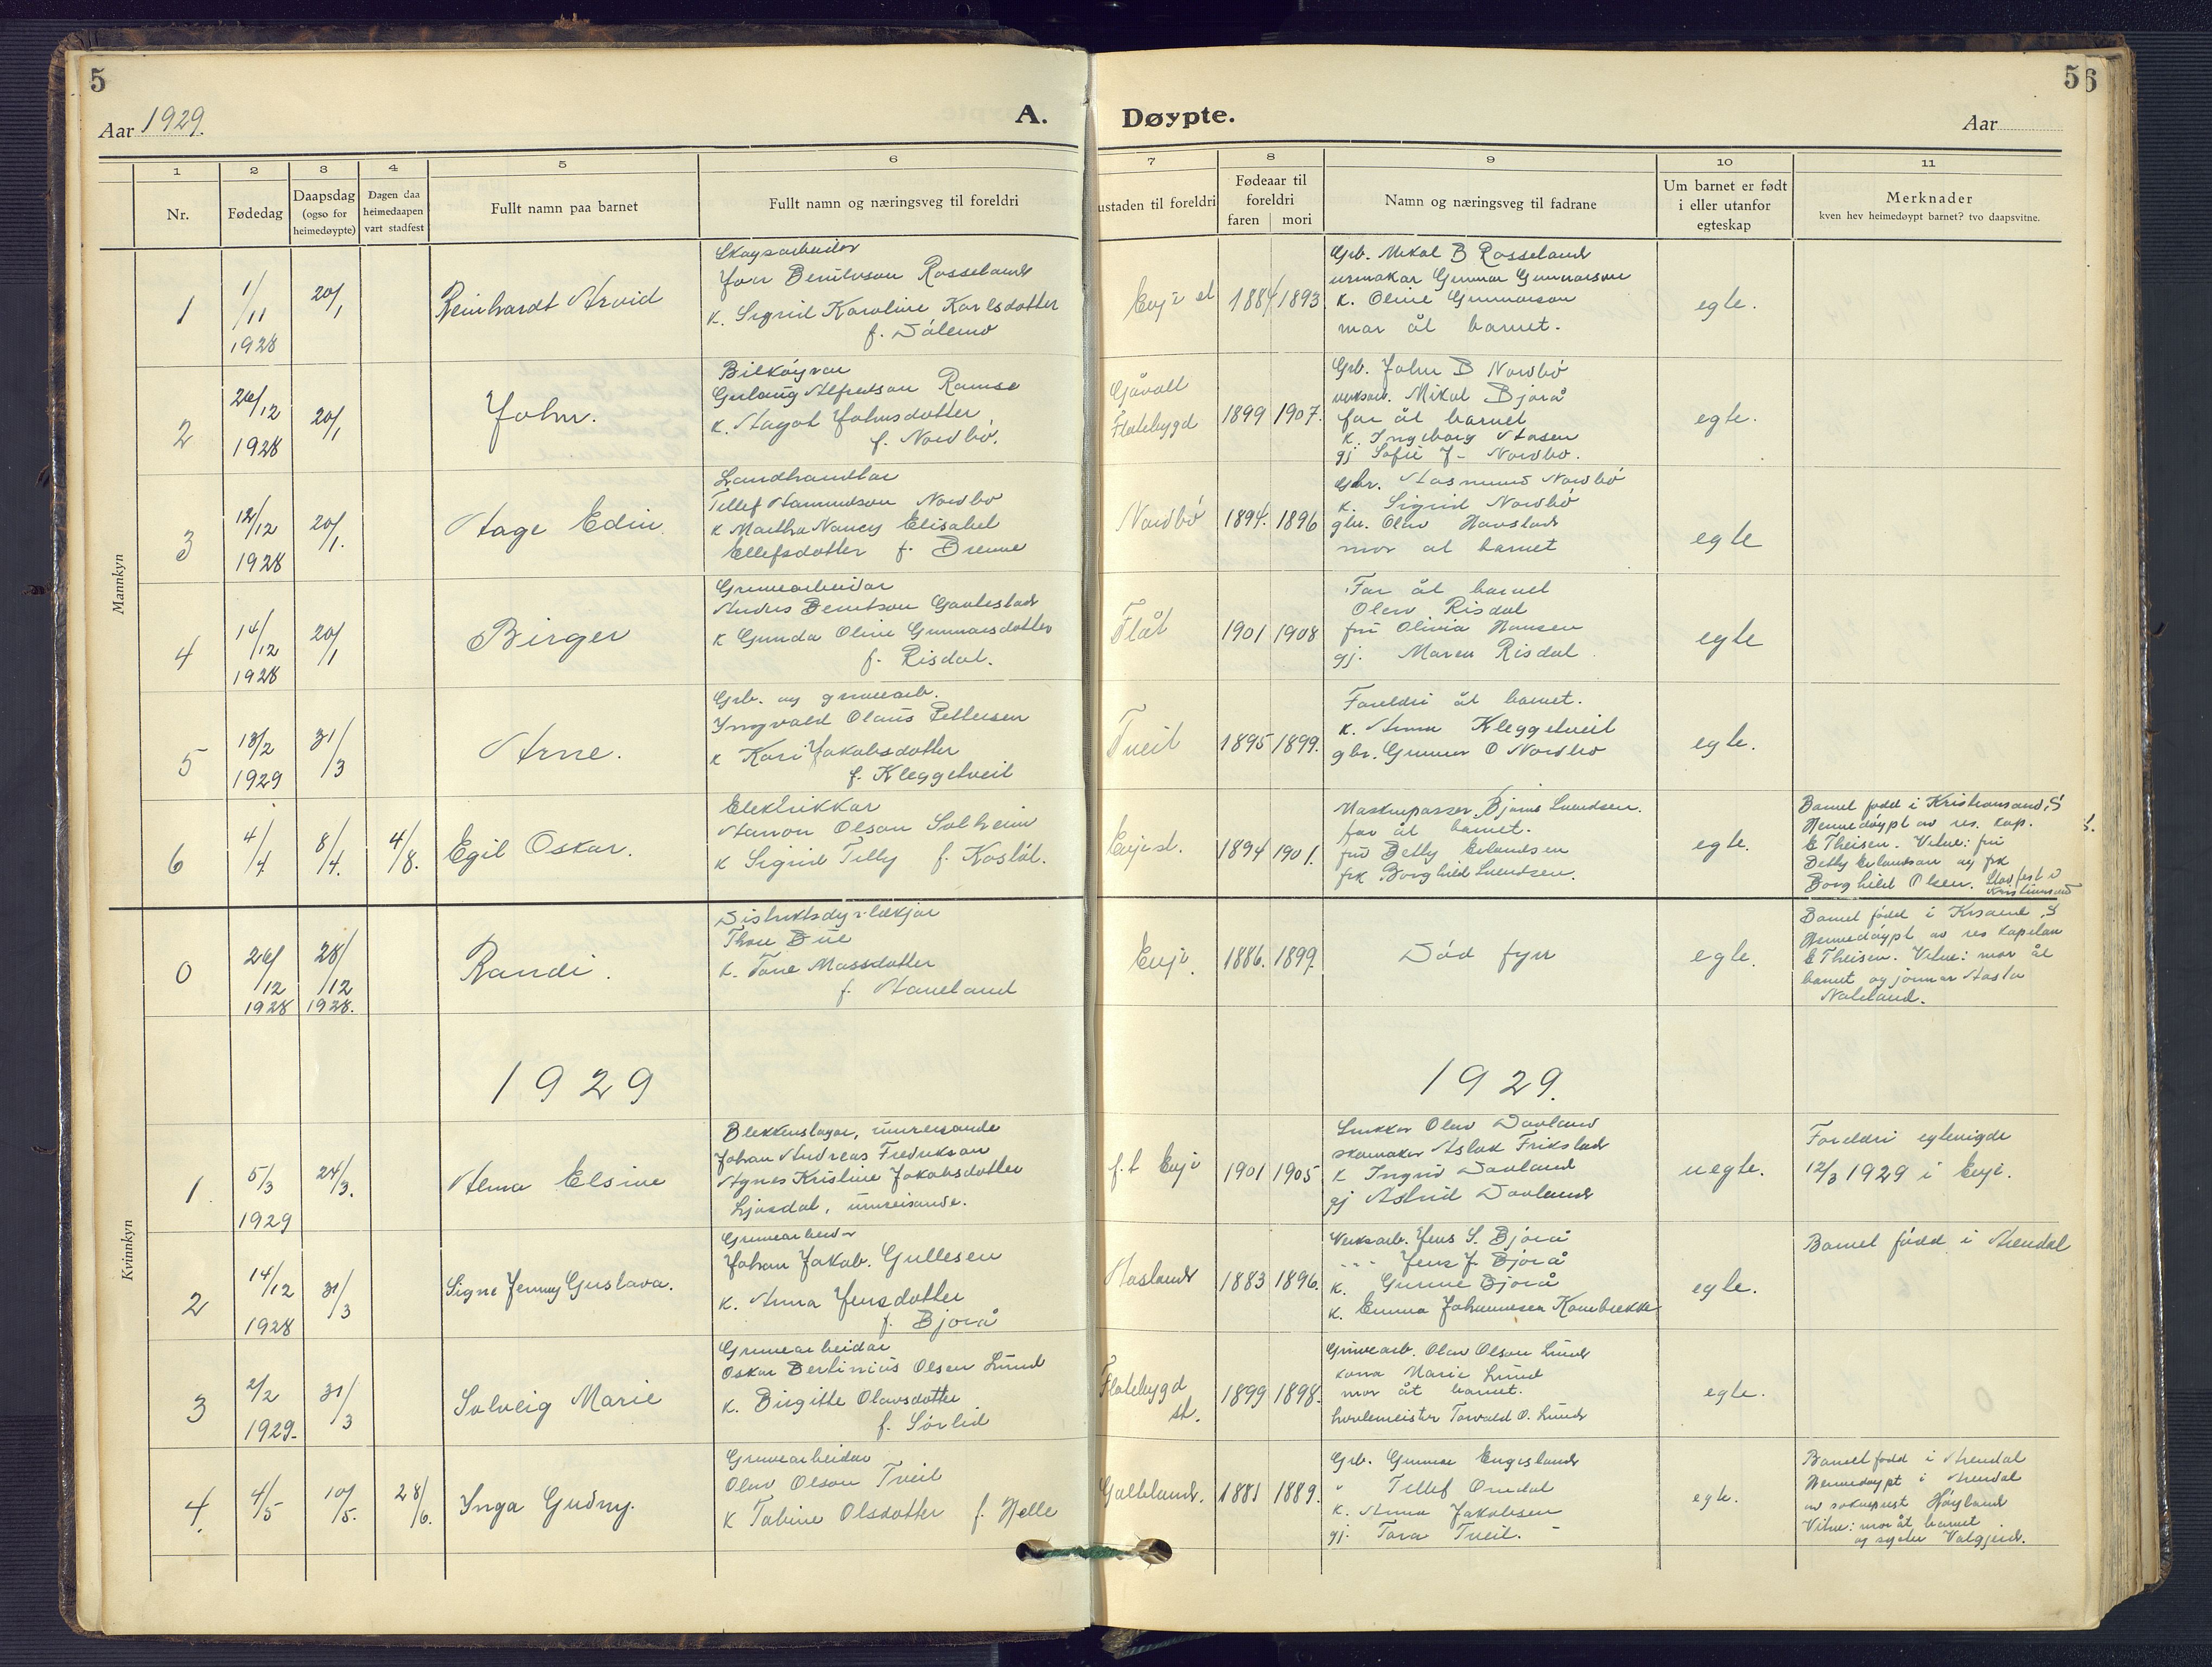 5
5
6
Aar 1929.
A.
Døypte.
Aar
1
2
3
4
5
6
7
8
9
10
11
Nr.
Fødedag
Daapsdag
(ogso for
heimedøypte)
Dagen daa
heimedaapen
vart stadfest
Fullt namn paa barnet
Fullt namn og næringsveg til foreldri
ustaden til foreldri
Fødeaar til
foreldri
faren mori
Namn og næringsveg til fadrane
Um barnet er født
i eller utanfor
egteskap
Merknader
kven hev heimedøypt barnet? tvo daapsvitne.
Mannkyn
1
1/11
1928
20/1
Reinhardt Arvid
Skogsarbeidar
Rosseland
k. Sigrid Karoline Karlsdotter
f. Dålemo
Evje st
1884 1893
Grb. Mikal B Rosseland
urmakar Gunnar Gunnarson
k. Oline Gunnarson
mor åt barnet.
egte.
2
26/12
1928
20/1
John.
Bilkøyrar
Gunlaug Alfredson Ramse
k. Aagot Johnsdotter
f. Nordbø.
Gåvall
Flatebygd
1899 1907.
Grb. John B Nordbø
verksarb. Mikal Bjorå
far åt barnet
k. Ingeborg Aasen
gj Sofie J- Nordbø.
egte.
3
12/12
1928
20/1.
Aage Edin.
Landhandlar
Tellef Aamundson Nordbø
k Martha Nancy Elisabet
Ellefsdotter f. Brenne
Nordbø
1894. 1896
Gbr. Aasmund Nordbø
k. Sigrid Nordbø
gbr. Olav Haustad
mor åt barnet
egte
4
14/12
1928
20/1
Birger
Gruvearbeidar
Anders Berntson Gautestad
k Gunda Oline Gunnarsdotter
f. Risdal.
Flåt
1901 1908
Far åt barnet
Olav Risdal
fru Olivia Hansen
gj. Maren Risdal.
egte
5
13/2
1929
31/3
Arne.
Grb. og gruvearb.
Yngvald Olaus Pettersen
k Kari Jakobsdotter
f. Kleggetveit
Tveit
1895 1899.
Foreldri åt barnet.
k. Anna Kleggetveit
gbr. Gunnar O Nordbø
egte.
6
4/4
8/4.
4/8.
Egil Oskar.
Elektrikkar
Aanon Olson Solheim
k Sigrid Telly f. Kosløt.
Evje st.
1894 1901.
Maskinpasser Bjarne Svendsen.
far åt barnet.
fru Betty Erlandsen
frk Borghild Svendsen.
egte.
Barnet fødd i Kristiansand, S
Heimedøypt av res. kap.
E Theisen. Vitne: fru
Betty Erlandsen og frk
Borghild Olsen. Stadfest i
Kristiansand
S.
0
26/12
1928
28/12
1928.
Randi.
Distriktsdyrlækjar
Thore Bue
k. Tone Massdotter
f. Haueland
Evje.
1886. 1899.
Død fyrr
egte.
Barnet fødd i Krsand, S
Heimedøypt av res kapelan
E Theisen. Vitne: mor åt
barnet og jormor Aasta
Nateland.
1929
1929.
Kvinnkyn
1.
5/3
1929
24/3.
Alma Elsine
Blekkenslagar, umreisande
Johan Andreas Fredrikson
Agnes Kristine Jakobsdotter
Ljosdal, umreisande.
f.t Evje
1901 1905
Snikkar Olav Dovland
skomakar Aslak Frikstad
k Ingrid Dovland
gj Astrid Dovland
uegte.
Foreldri egtevigde
12/3 1929 i Evje.
2
14/12
1928
31/3
Signe Jenny Gustava.
Gruvearbeidar
Johan Jakob. Gullesen
k. Anna Jensdotter
f. Bjorå
Hasland
1883 1896.
Verksarb. Jens S. Bjorå
--- Jens J. Bjorå
k. Gunne Bjorå
k. Emma Johannesen
egte.
Barnet fødd i Arendal
3
2/2
1929.
31/3
Solveig Marie
Gruvearbeidar
Oskar Bertinius Olsen Lund
k. Birgitte Olavsdotter
f. Sørlid
Flatebygd
st.
1899 1898.
Gruvearb. Olav Olson Lund
kona Marie Lund
mor åt barnet.
hovlemeister Torvald O. Lund
egte.
4.
4/5
10/5.
28/6.
Ynga Gudny.
Gruvearbeidar
Olav Olson Tveit
k Tobine Olsdotter f. Helle
Galteland.
1881 1889.
Grb. Gunnar Engesland
" Tellef Omdal
k. Anna Jakobsen
gj. Tora Tveit.
egte.
Barnet fødd i Arendal
Heimedøypt i Arendal
av sokneprest Høyland
Vitne: mor åt barnet
og syster Valgjerd.